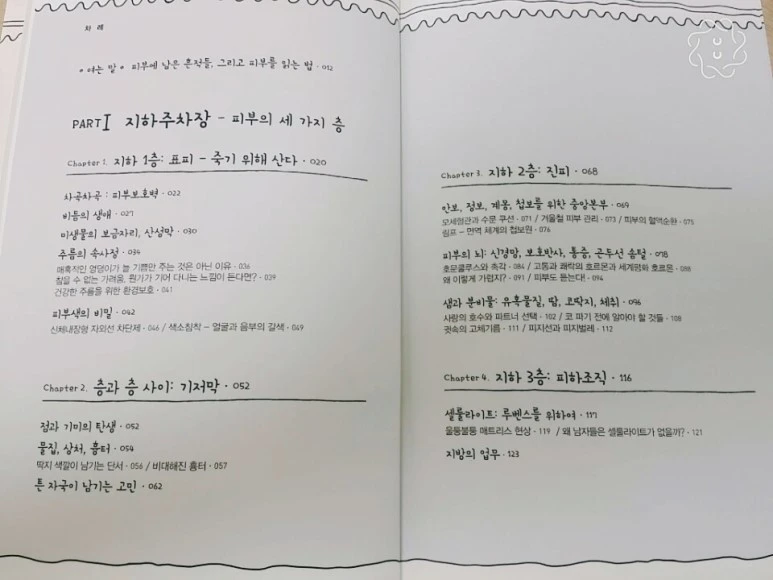 차 례
• 여는 말 • 피부에 남은 흔적들, 그리고 피부를 읽는 법 · 012
PART I 지하주차장 - 피부의 세 가지 층
Chapter 1. 지하 1층: 표피 - 죽기 위해 산다 · 020
차곡차곡 : 피부보호벽 · 022
비듬의 생애 · 027
미생물의 보금자리, 산성막 · 030
주름의 속사정 · 034
매혹적인 엉덩이가 늘 기쁨만 주는 것은 아닌 이유 · 036
참을 수 없는 가려움, 뭔가가 기어 다니는 느낌이 든다면? · 039
건강한 주름을 위한 환경보호 · 041
피부색의 비밀 · 042
신체내장형 자외선 차단제 · 046 / 색소침착 - 얼굴과 음부의 길색 · 049
Chapter 2. 층과 층 사이: 기저막 · 052
점과 기미의 탄생 · 052
물집, 상처, 흉터 · 054
딱지 색깔이 남기는 단서 · 056 / 비대해진 흉터 · 057
튼 자국이 남기는 고민 · 062
Chapter 3. 지하 2층: 진피 · 068
안보, 정보, 계몽, 첩보를 위한 중앙본부 · 069
모세혈관과 수분 쿠션 · 071 / 겨울철 피부 관리 · 073 / 피부의 혈액순환 · 075
림프 - 면역 체계의 첩보원 · 076
피부의 뇌: 신경망, 보호반사, 통증, 곤두선 솜털 · 078
호문쿨루스와 촉각 · 084 / 고통과 쾌락의 호르몬과 세계평화 호르몬 · 088
왜 이렇게 가렵지? · 091 / 피부도 듣는다! · 094
샘과 분비물: 유혹물질, 땀, 코딱지, 체취 · 096
사랑의 호수와 파트너 선택 · 102 / 코 파기 전에 알아야 할 것들 · 108
귓속의 고체기름 · 111 / 피지선과 피지벌레 · 112
Chapter 4. 지하 3층: 피하조직 · 116
셀룰라이트: 루벤스를 위하여 · 117
울퉁불퉁 매트리스 현상 · 119 / 왜 남자들은 셀룰라이트가 없을까? · 121
지방의 업무 · 123